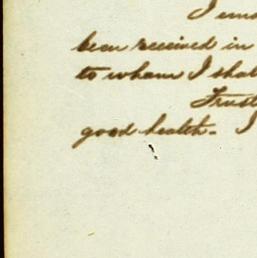 I
been received in
to whom I shal
Trust
good health. I